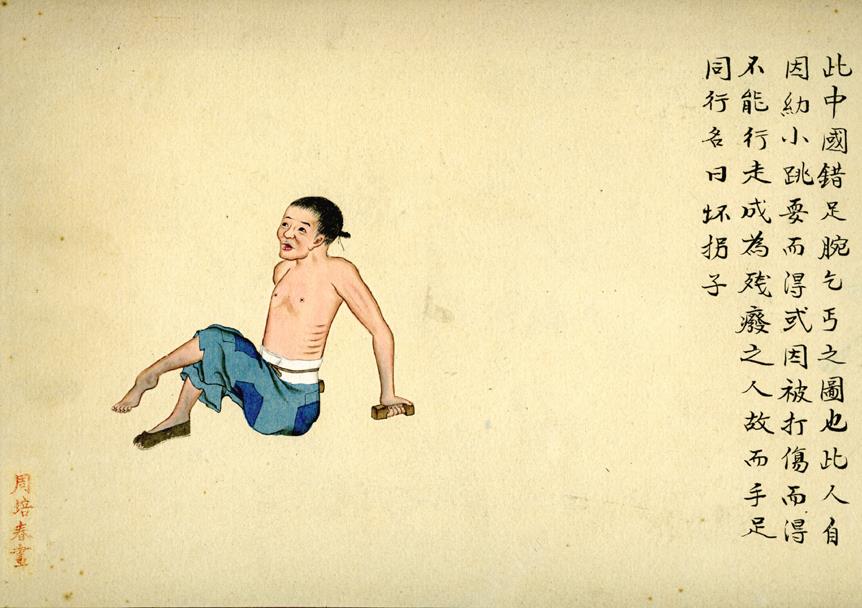 此中國錯足腕乞丐之圖也此人自
因幼小跳耍而淂或因被打傷而淂
不能行走成為残癈之人故而手足
同行名曰坏拐子
周培春畫